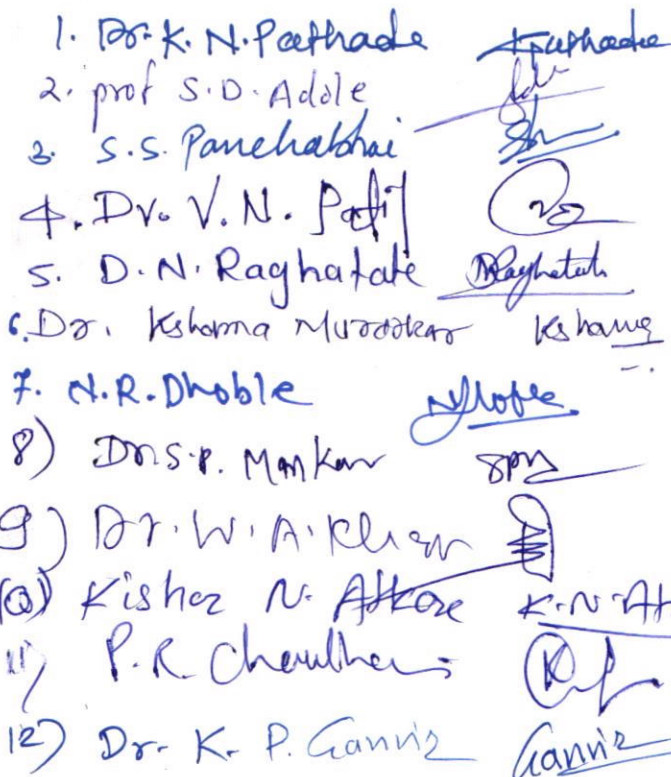 1. Dr. K. N. Pathade Kpathade
2. prof S.D. Adole
3. S.S. Panchabhai
4. Dr. V. N. Patil
5. D. N. Raghatate DRaghatate
6. Dr. Kshama Murarkar Kshama
7. N.R. Dhoble
8) Dr. S.P. Mankar spm
9) Dr. W. A. Khan
10) Kishor N. Atkare K.N. At
11) P.R. Chaudhari
12) Dr. K. P. Ganvir Ganvir